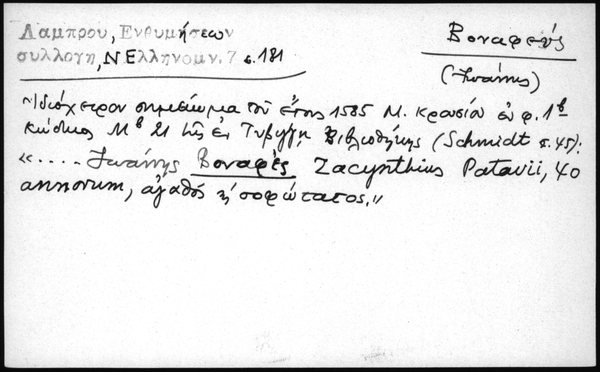 Λαμπρου, Ενθυμήσεων
συλλογη, Ν Ελληνομν. 7 σ. 181
Βοναφεύς
(Ἰωάννης)
"Ιδιόχειρον σημείωμα τοῦ ἔτους 1585 Μ. Κρουσίου ἐν φ. 1β
κώδικος Mb 21 τῆς ἐν Τυβίγγῃ Βιβλιοθήκης (Schmidt σ. 45):
«.... Ἰωάννης Βοναφὲς Zacynthius Patavii, 40
annorum, ἀγαθὸς κ̀ σοφώτατος."